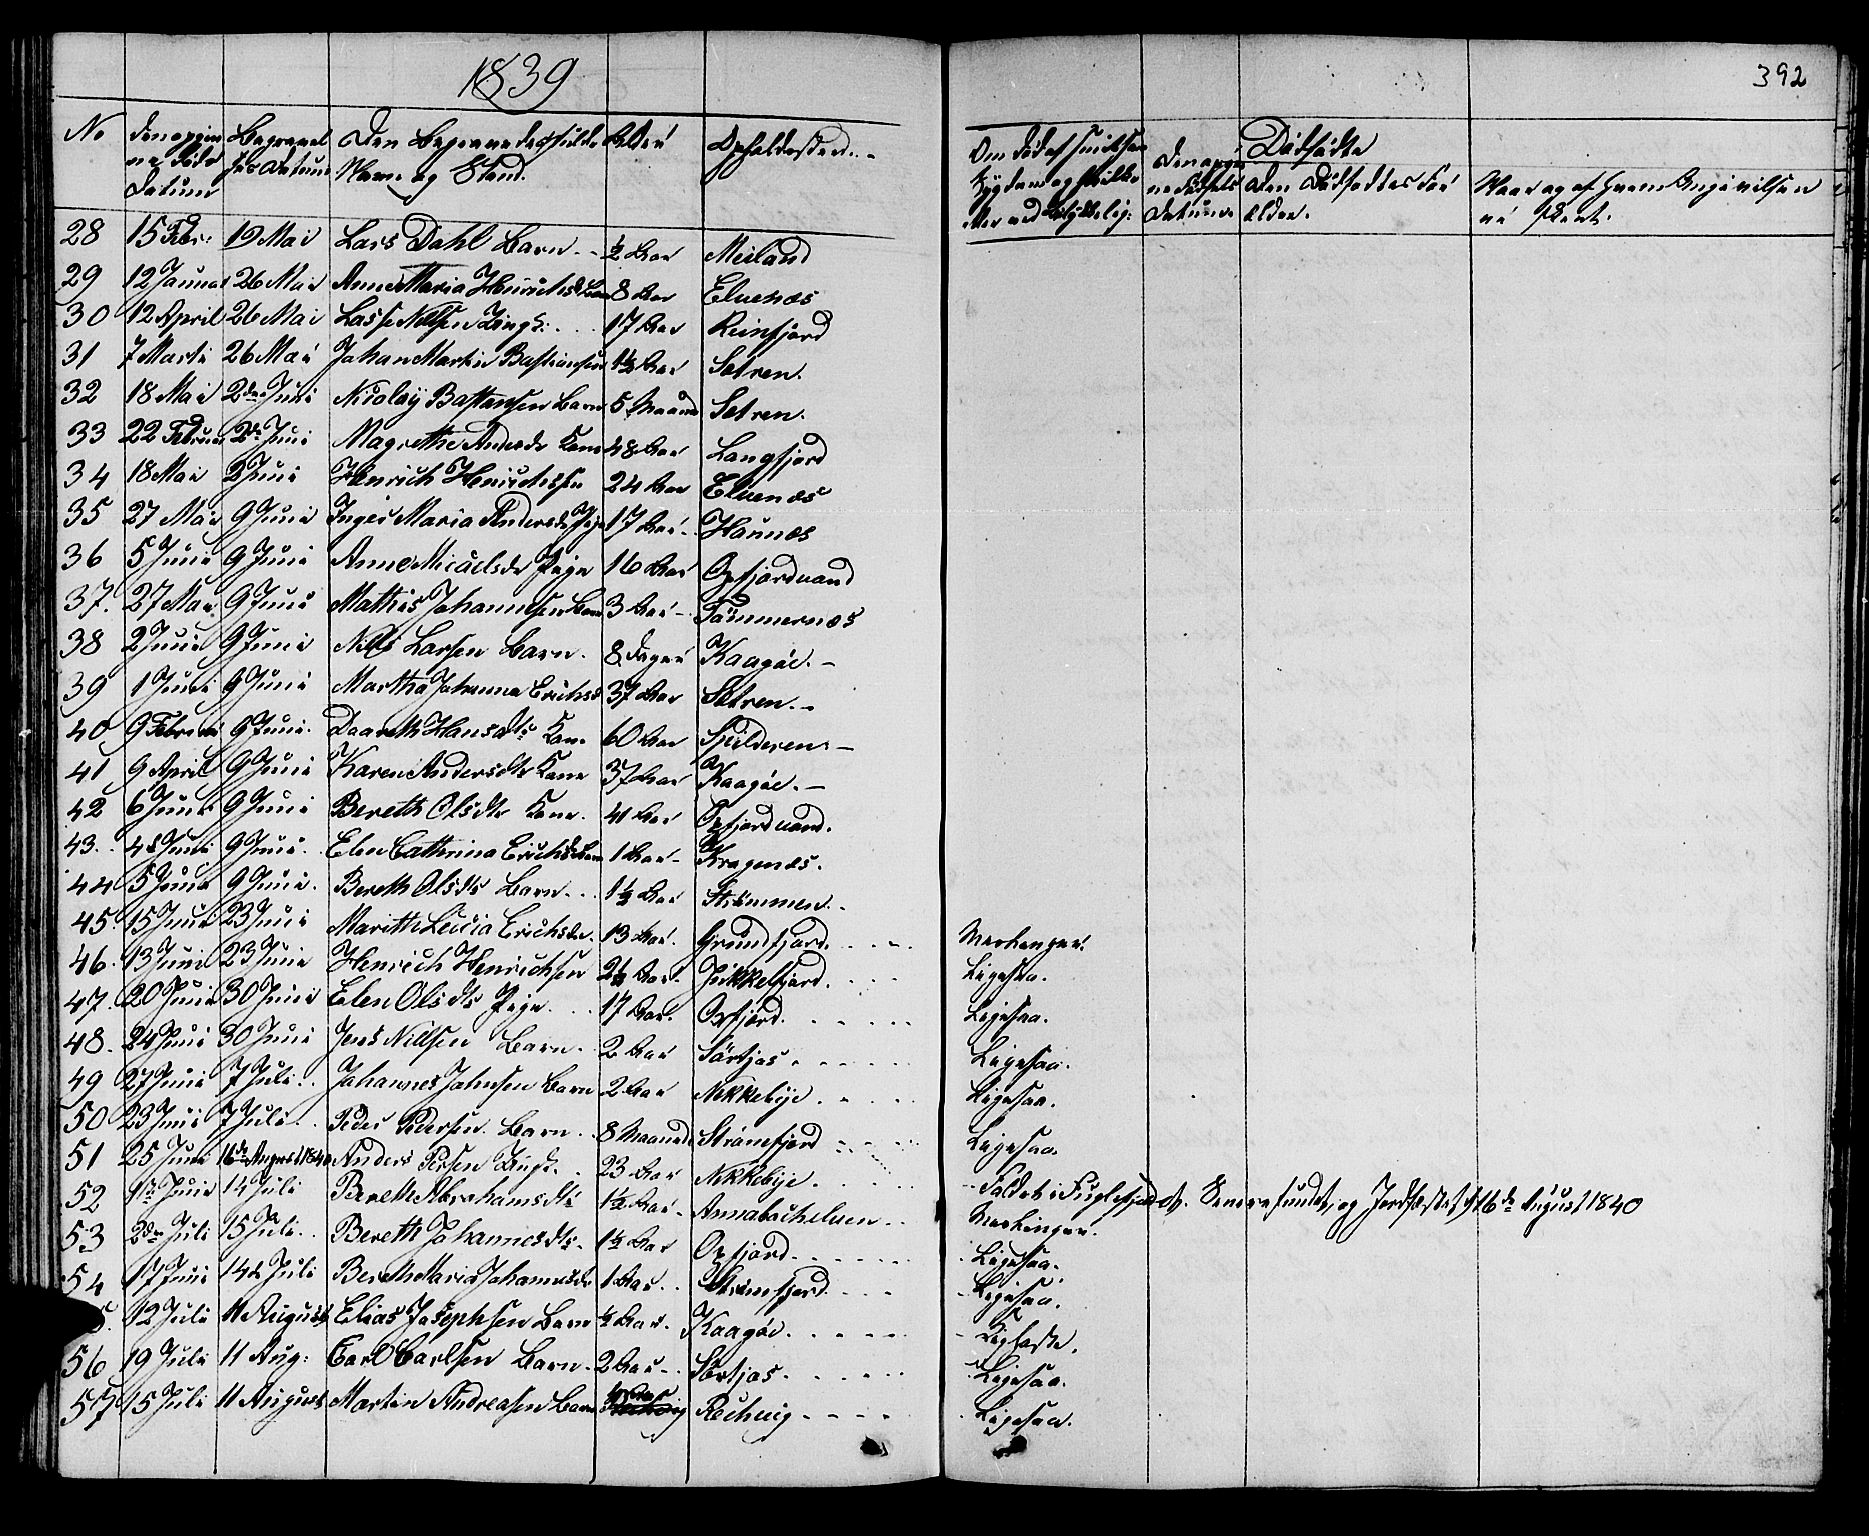 1839
392
No | den opgivne Døds Datum | Begravelses Datum | Den Begravedes fulde Navn og Stand. | Alder | Opholdssted.
Om død af smitsom Sygdom og hvilken | den opgivne Fødsels Datum | Dødfødte | Den Dødfødtes Forældre. | Naar og af hvem Angivelsen er skeet.
28 15 Febr: 19 Mai Lars Dahl Barn ½ Aar Meiland
29 12 Januar 26 Mai Anne Maria Henrichsd Barn 8 Aar Elvenæs
30 12 April 26 Mai Lasse Nilsen Ungk: 17 Aar Reinfjord
31 7 Marti 26 Mai Johan Martin Bastiansen 1½ Aar Setren.
32 18 Mai 2den Juni Nicolay Bastansen Barn 5 Maaned Setren.
33 22 Februar 2de Juni Magrethe Andersdr Kone 48 Aar Langfjord
34 18 Mai 2 Juni Henrich Henrichsen 24 Aar Elvenæs
35 27 Mai 9 Juni Inger Maria Andersdr Pige 17 Aar Haunæs
36 5 Juni 9 Juni Anne Micaelsdr Pige 16 Aar Oxfjordvand
37. 27 Mai 9 Juni Mathis Johannesen Barn 3 Aar Tömmernæs
38 2 Juni 9 Juni Nils Larsen Barn. 8 Dager Kaagöe.
39 1 Juni 9 Juni Martha Johanna Erichsd 37 Aar Setren.
40 9 Februar 9 Juni. Daareth Hansdtr Kone 60 Aar Spilderen.
41 9 April 9 Juni Karen Andersdtr Kone 37 Aar Kaagöe.
42 6 Juni 9 Juni Bereth Olsdtr Kone. 41 Aar Oxfjordvand.
43. 4de Juni 9 Juni. Elen Cathrina Erichsdr Barn 1 Aar Kragenæs.
44 5 Juni 9 Juni. Bereth Olsdtr Barn 1½ Aar Strömmen.
45. 15 Juni 23 Juni Marith Lucia Erichsdr. 13 Aar. Grundfjord. Meslinger.
46. 13 Juni 23 Juni Henrich Henrichsen 2½ Aar. Jökkelfjord. Ligesaa.
47. 20 Juni 30 Juni Elen Olsdtr Pige 17 Aar. Oxfjord. Ligesaa.
48. 24 Juni 30 Juni Jens Nilsen Barn. 2 Aar Sörtjos. Ligesaa.
49 27 Juni 7 Juli. Johannes Johnsen Barn 2 Aar Nikkebye. Ligesaa.
50 23 Juni 7 Juli. Peder Pedersen Barn 8 Maaned Straumfjord Ligesaa.
51 25 Juni 16de August 1840 Anders Persen Ungk. 23 Aar Nikkebye. Faldet i Fuglefjord. Senere fundet, og Jordfæstet 16de August 1840
52 1te Juni 14 Juli Bereth Abrahamsdtr 1½ Aar Annabachelven. Meslinger.
53 2den Juli 15 Juli. Bereth Johannesdtr. 1½ Aar Oxfjord. Ligesaa.
54 17 Juni 14de Juli Bereth Maria Johannesdr 1 Aar. Straumfjord. Ligesaa.
5. 12 Juli 11 August Elias Josephsen Barn ½ Aar. Kaagöe.
56 19 Juli 11 Aug: Carl Carlsen Barn. 2 Aar Sörtjos. Ligesaa.
57 15 Juli 11 August Martin Andreasen Barn Aar Rechvig Ligesaa.